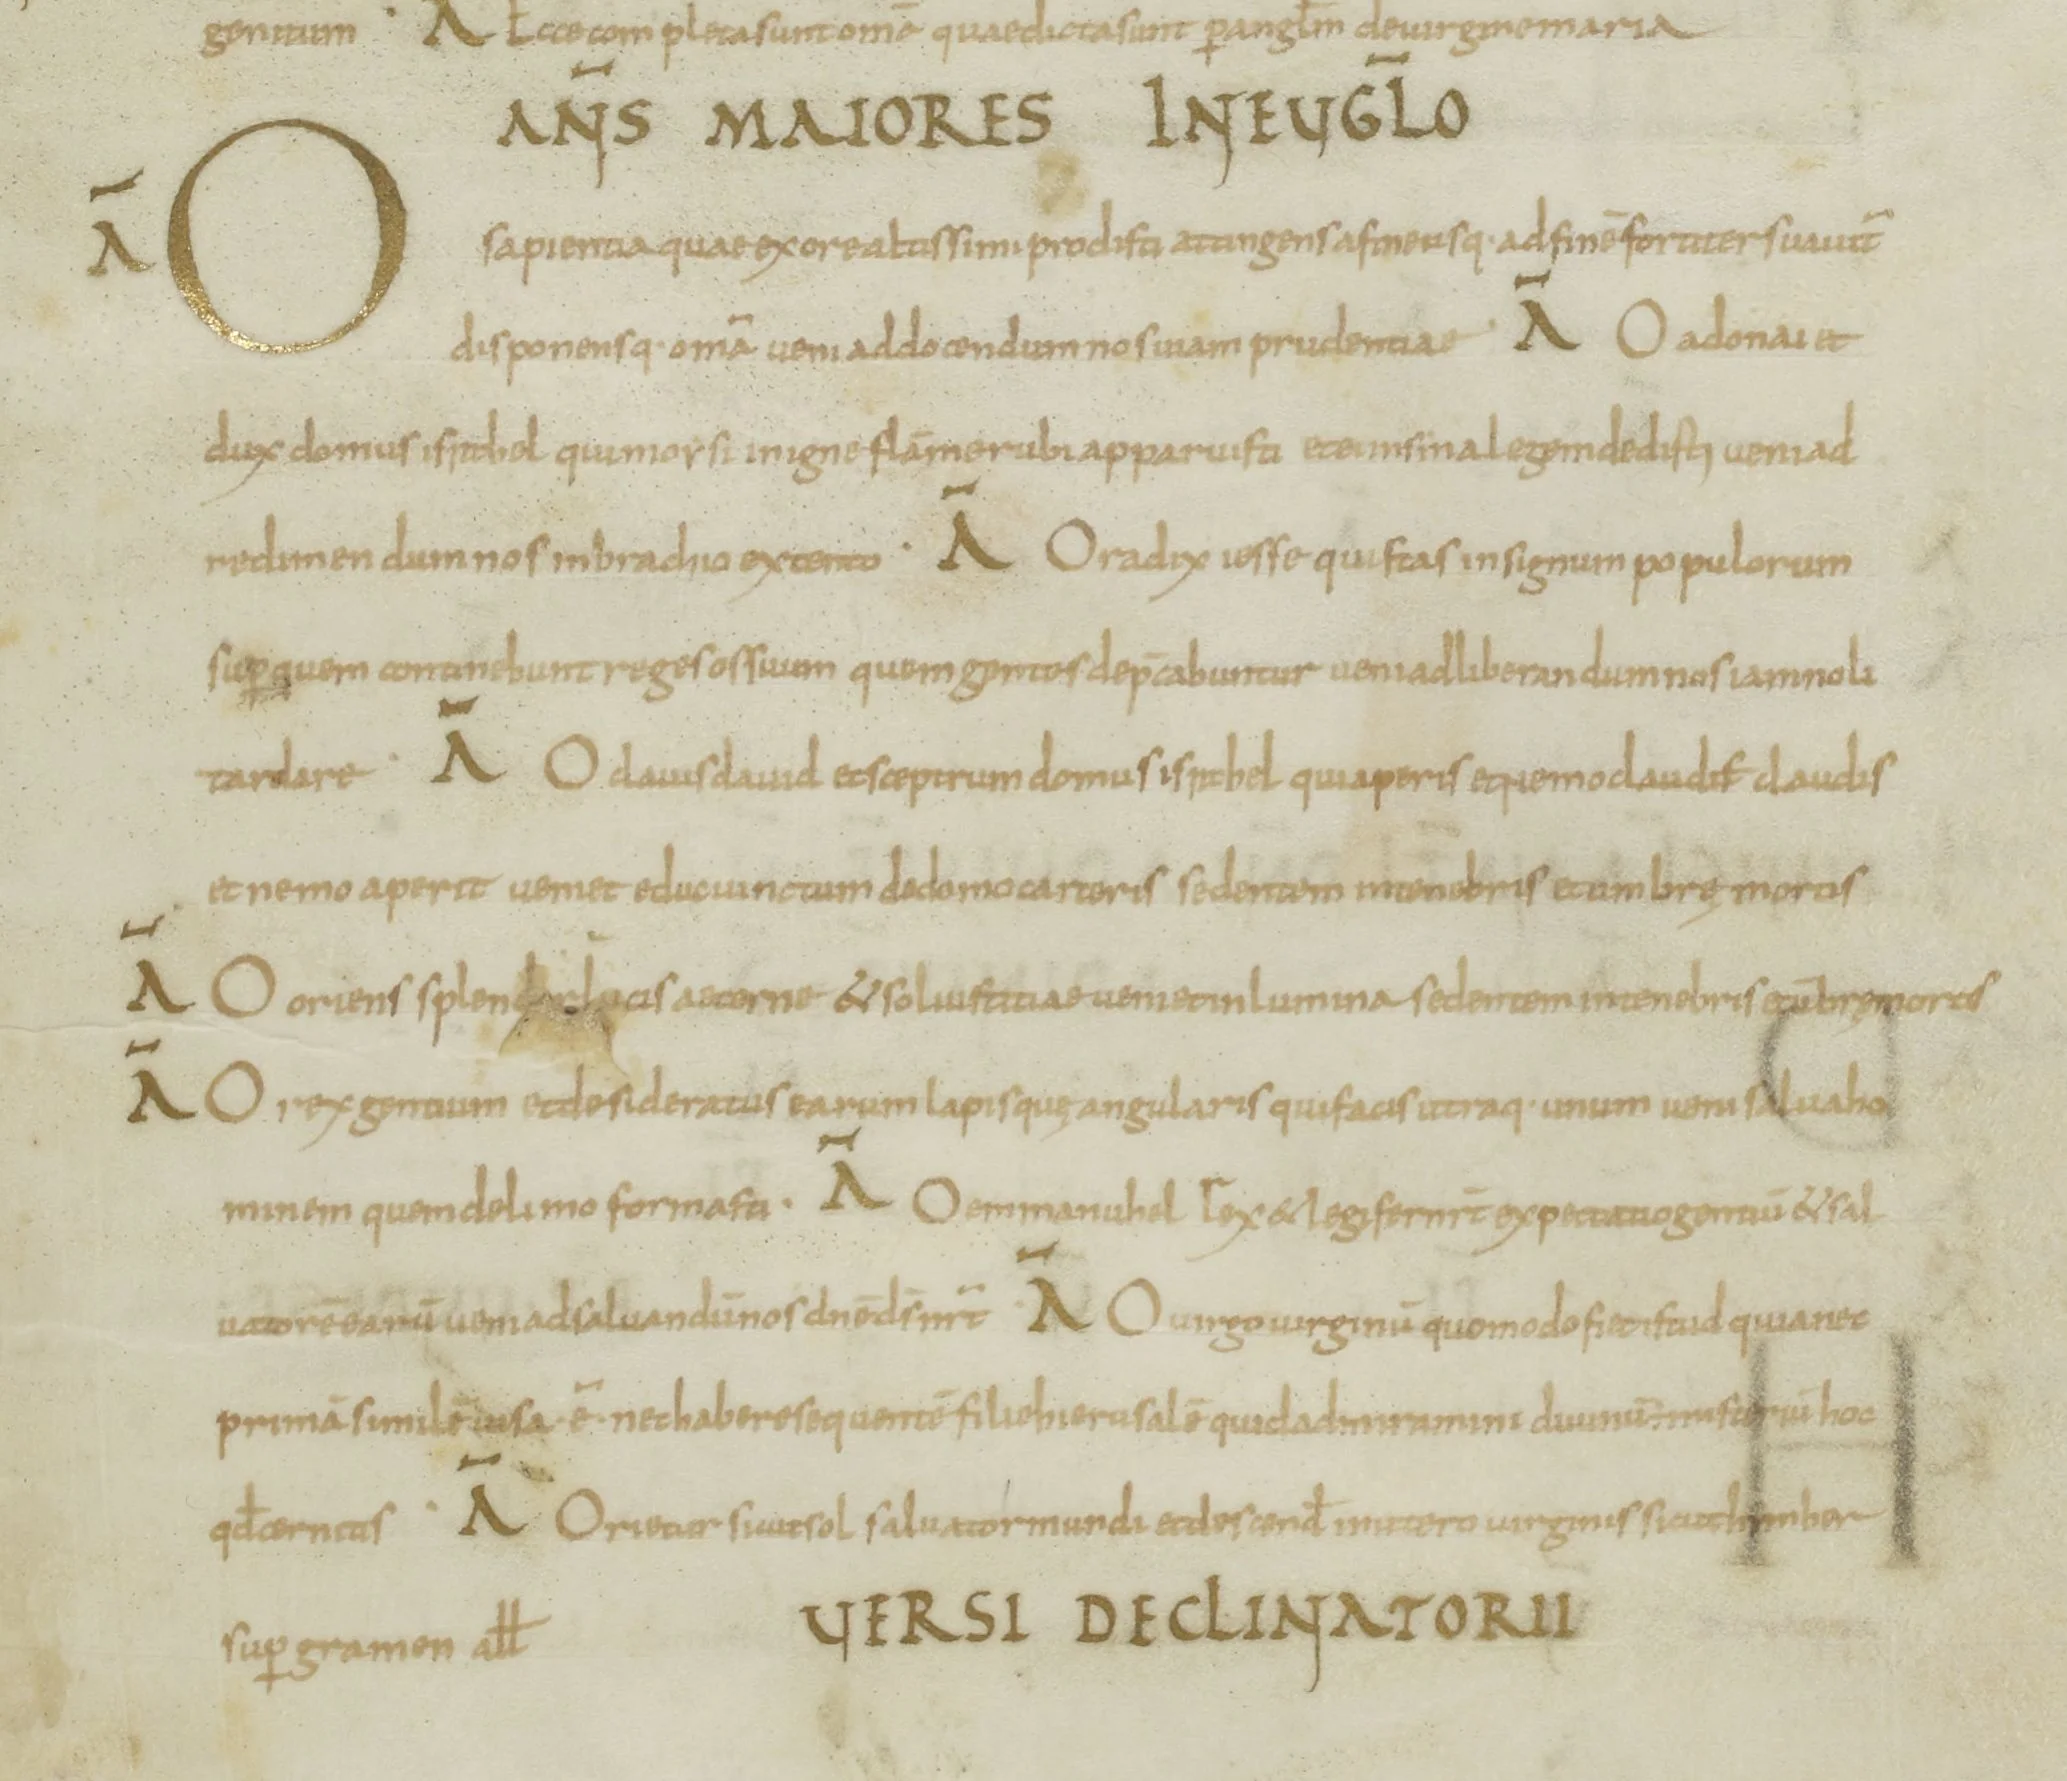 genitum · Ā Ecce completa sunt omē quae dicta sunt p̄ anglm̄ de virgine maria
AÑS MAIORES IN EUGL̄O
Ā O sapientia quae ex ore altissimi prodisti attingens a fine usq· ad finē fortiter suavit̄
disponensq· omā veni ad docendum nos viam prudentiae · Ā O adonai et
dux domus israhel qui moysi in igne flāme rubi apparuisti et ei in sina legem dedisti veni ad
redimendum nos in brachio extento · Ā O radix iesse qui stas in signum populorum
sup̱ quem continebunt reges os suum quem gentes dep̄cabuntur veni ad liberandum nos iam noli
tardare · Ā O clavis david et sceptrum domus israhel qui aperis et nemo claudit claudis
et nemo aperit veni et educ vinctum de domo carceris sedentem in tenebris et umbrę mortis
Ā O oriens splendor lucis aeterne & sol iustitiae veni et inlumina sedentem in tenebris et ūbrę mortis
Ā O rex gentium et desideratus earum lapisquę angularis qui facis utraq· unum veni salva ho
minem quem de limo formasti · Ā O emmanuhel rex & legifer nr̄ expectatio gentiū & sal
vatorē earū veni ad salvandū nos dnē ds̄ nr̄ · Ā O virgo virginū quomodo fiet istud quia nec
primā similē visa · ē · nec habere sequentē filie hierusalē quid admiramini divinū misteriū hoc
qđ cernitis · Ā Orietur sicut sol salvator mundi et descenđ in utero virginis sicut himber
sup̱ gramen all̄ VERSI DECLINATORII